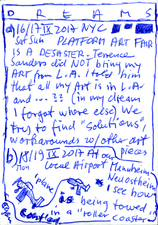 DREAMS
a) 16/17 IX 2017 NYC
Sat Sun PLATFORM ART FAIR
IS A DESASTER. Terrence
Sanders did NOT bring my
ART from L.A. I told him
that all my Art is in L.A.
and ... ?? (in my dream
I forgot where else) We
try to find "solutions",
workarounds w/other art
pieces
b) 18/19 IX 2017 At our
Mon Local Airport Mannheim
Neuostheim
'plane
see how
is being towed
in a "roller
coaster"